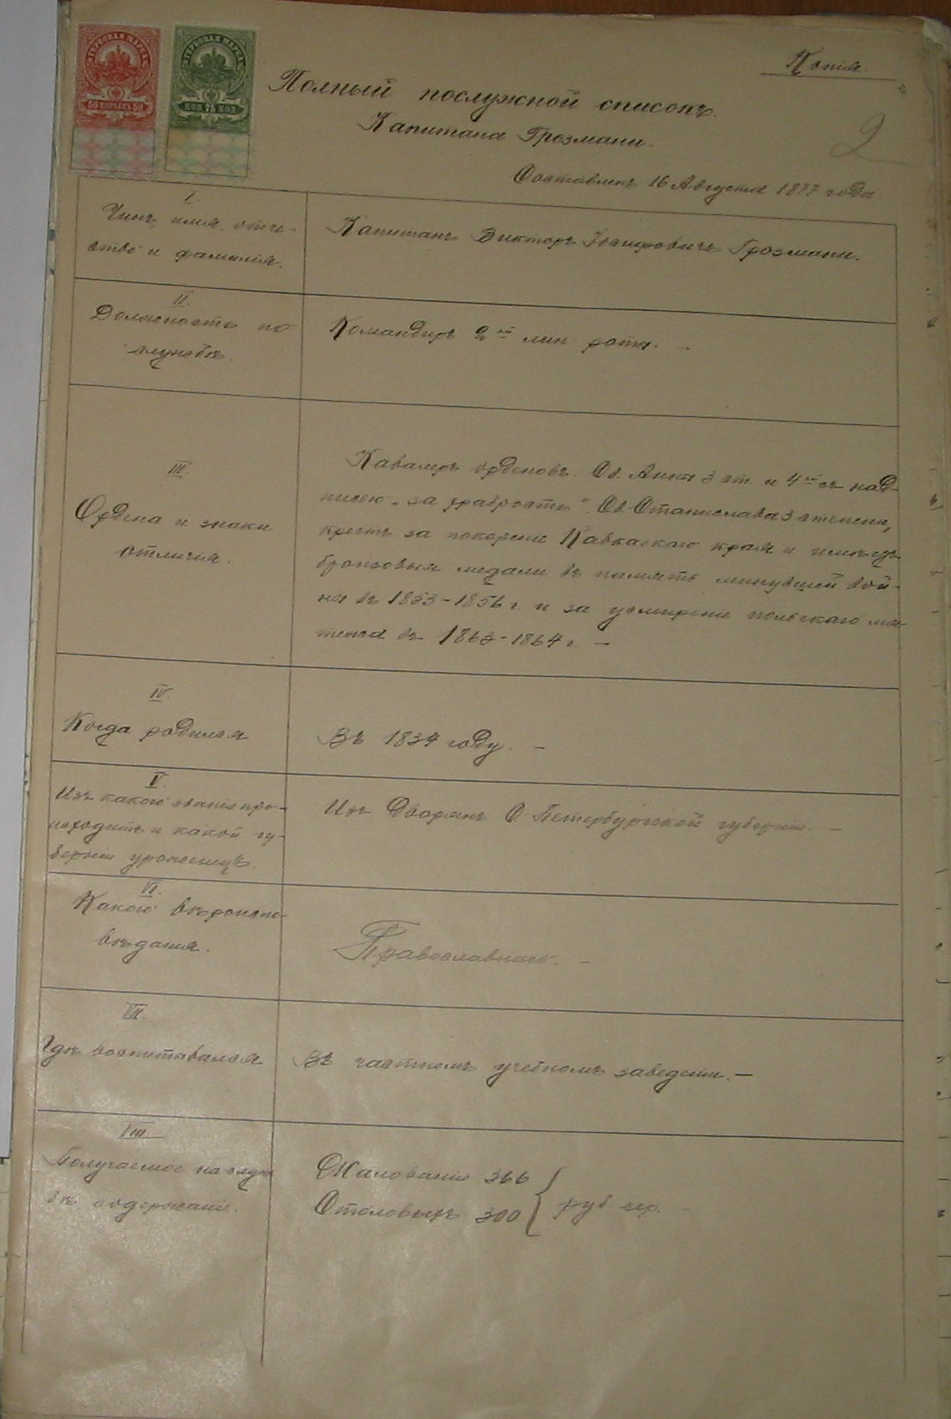 ГЕРБОВАЯ МАРКА
50 КОПѢЕКЪ 50
ГЕРБОВАЯ МАРКА
КОП 75 КОП
Копія
2
Полный послужной списокъ
Капитана Грозмани.
Составленъ 16 Августа 1877 года
I.
Чинъ, имя, отче-
ство и фамилія.
Капитанъ Викторъ Іосифовичъ Грозмани.
II.
Должность по
службѣ.
Командиръ 2ой лин роты.
III
Ордена и знаки
отличія.
Кавалеръ орденовъ Св. Анны 3 ст. и 4ой съ над-
писью „за храбрость" Св. Станислава 3 степени,
крестъ за покореніе Кавказскаго края и имѣетъ
бронзовыя медали въ память минувшей вой-
ны въ 1853-1856 г. и за усмиреніе польскаго мя-
тежа въ 1863-1864 г. —
IV.
Когда родился
Въ 1834 году. —
V.
Изъ какого званія про-
исходитъ и какой гу-
берніи уроженецъ.
Изъ Дворянъ С. Петербургской губерніи. —
VI.
Какого вѣроиспо-
вѣданія.
Православнаго. —
VII.
Гдѣ воспитывался
Въ частномъ учебномъ заведеніи. —
VIII
Получаемое на служ
бѣ содержаніе.
Жалованія 366
Столовыхъ 300
руб сер.